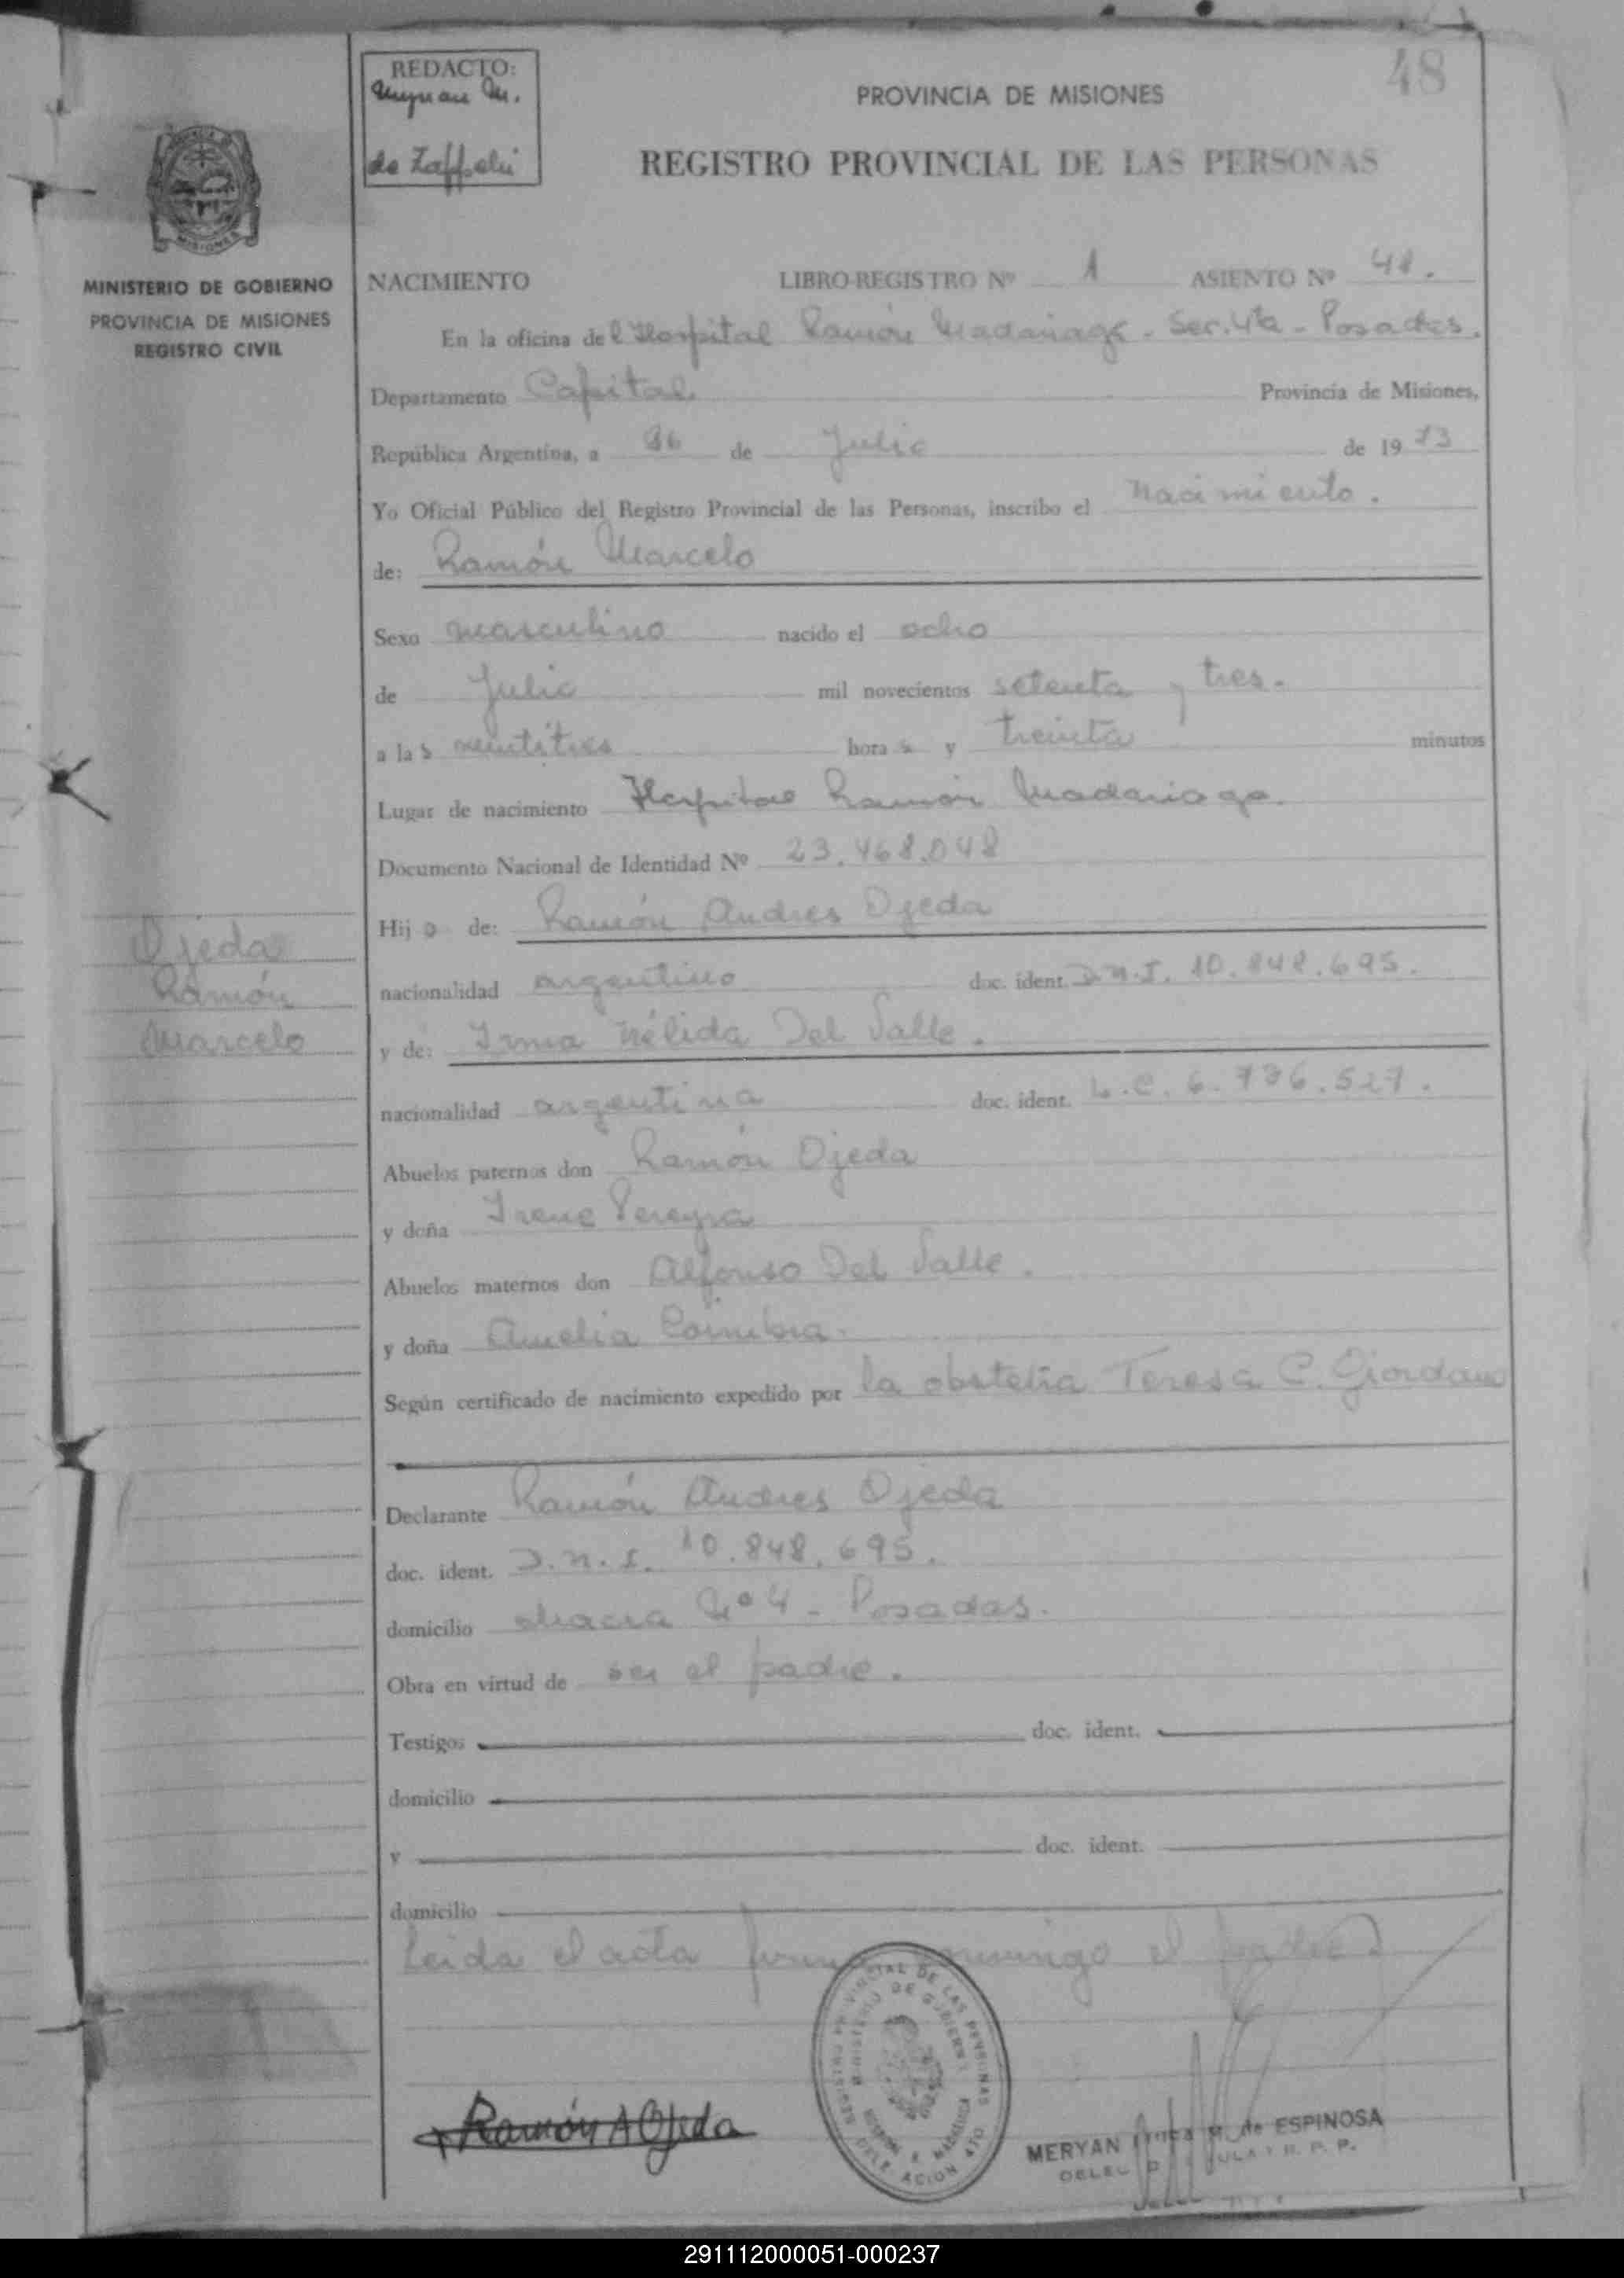 48
REDACTO:
de Zappelli
PROVINCIA DE MISIONES
REGISTRO PROVINCIAL DE LAS PERSONAS
MINISTERIO DE GOBIERNO
PROVINCIA DE MISIONES
REGISTRO CIVIL
NACIMIENTO LIBRO-REGISTRO Nº 1 ASIENTO Nº 48.
En la oficina del Hospital Ramón Madariaga - Sec. 4ta - Posadas.
Departamento Capital Provincia de Misiones,
República Argentina, a de Julio de 1973
Yo Oficial Público del Registro Provincial de las Personas, inscribo el nacimiento.
de: Ramón Marcelo
Sexo masculino nacido el ocho
de Julio mil novecientos setenta y tres.
a las veintitres horas y treinta minutos
Lugar de nacimiento Hospital Ramón Madariaga.
Documento Nacional de Identidad Nº 23.468.048
Hijo de: Ramón Andres Ojeda
nacionalidad argentino doc. ident. D.N.I. 10.848.695.
y de: Irma Nélida Del Valle.
nacionalidad argentina doc. ident. L.C. 6.736.527.
Ojeda
Ramón
Marcelo
Abuelos paternos don Ramón Ojeda
y doña Irene Pereyra
Abuelos maternos don Alfonso Del Valle.
y doña Amelia Coimbra.
Según certificado de nacimiento expedido por la obstetra Teresa C. Giordano
Declarante Ramón Andres Ojeda
doc. ident. D.N.I. 10.848.695.
domicilio chacra Nº 4 - Posadas.
Obra en virtud de ser el padre.
Testigos doc. ident.
domicilio
y doc. ident.
domicilio
Leida el acta el padre
Ramón A Ojeda
MERYAN de ESPINOSA
291112000051-000237